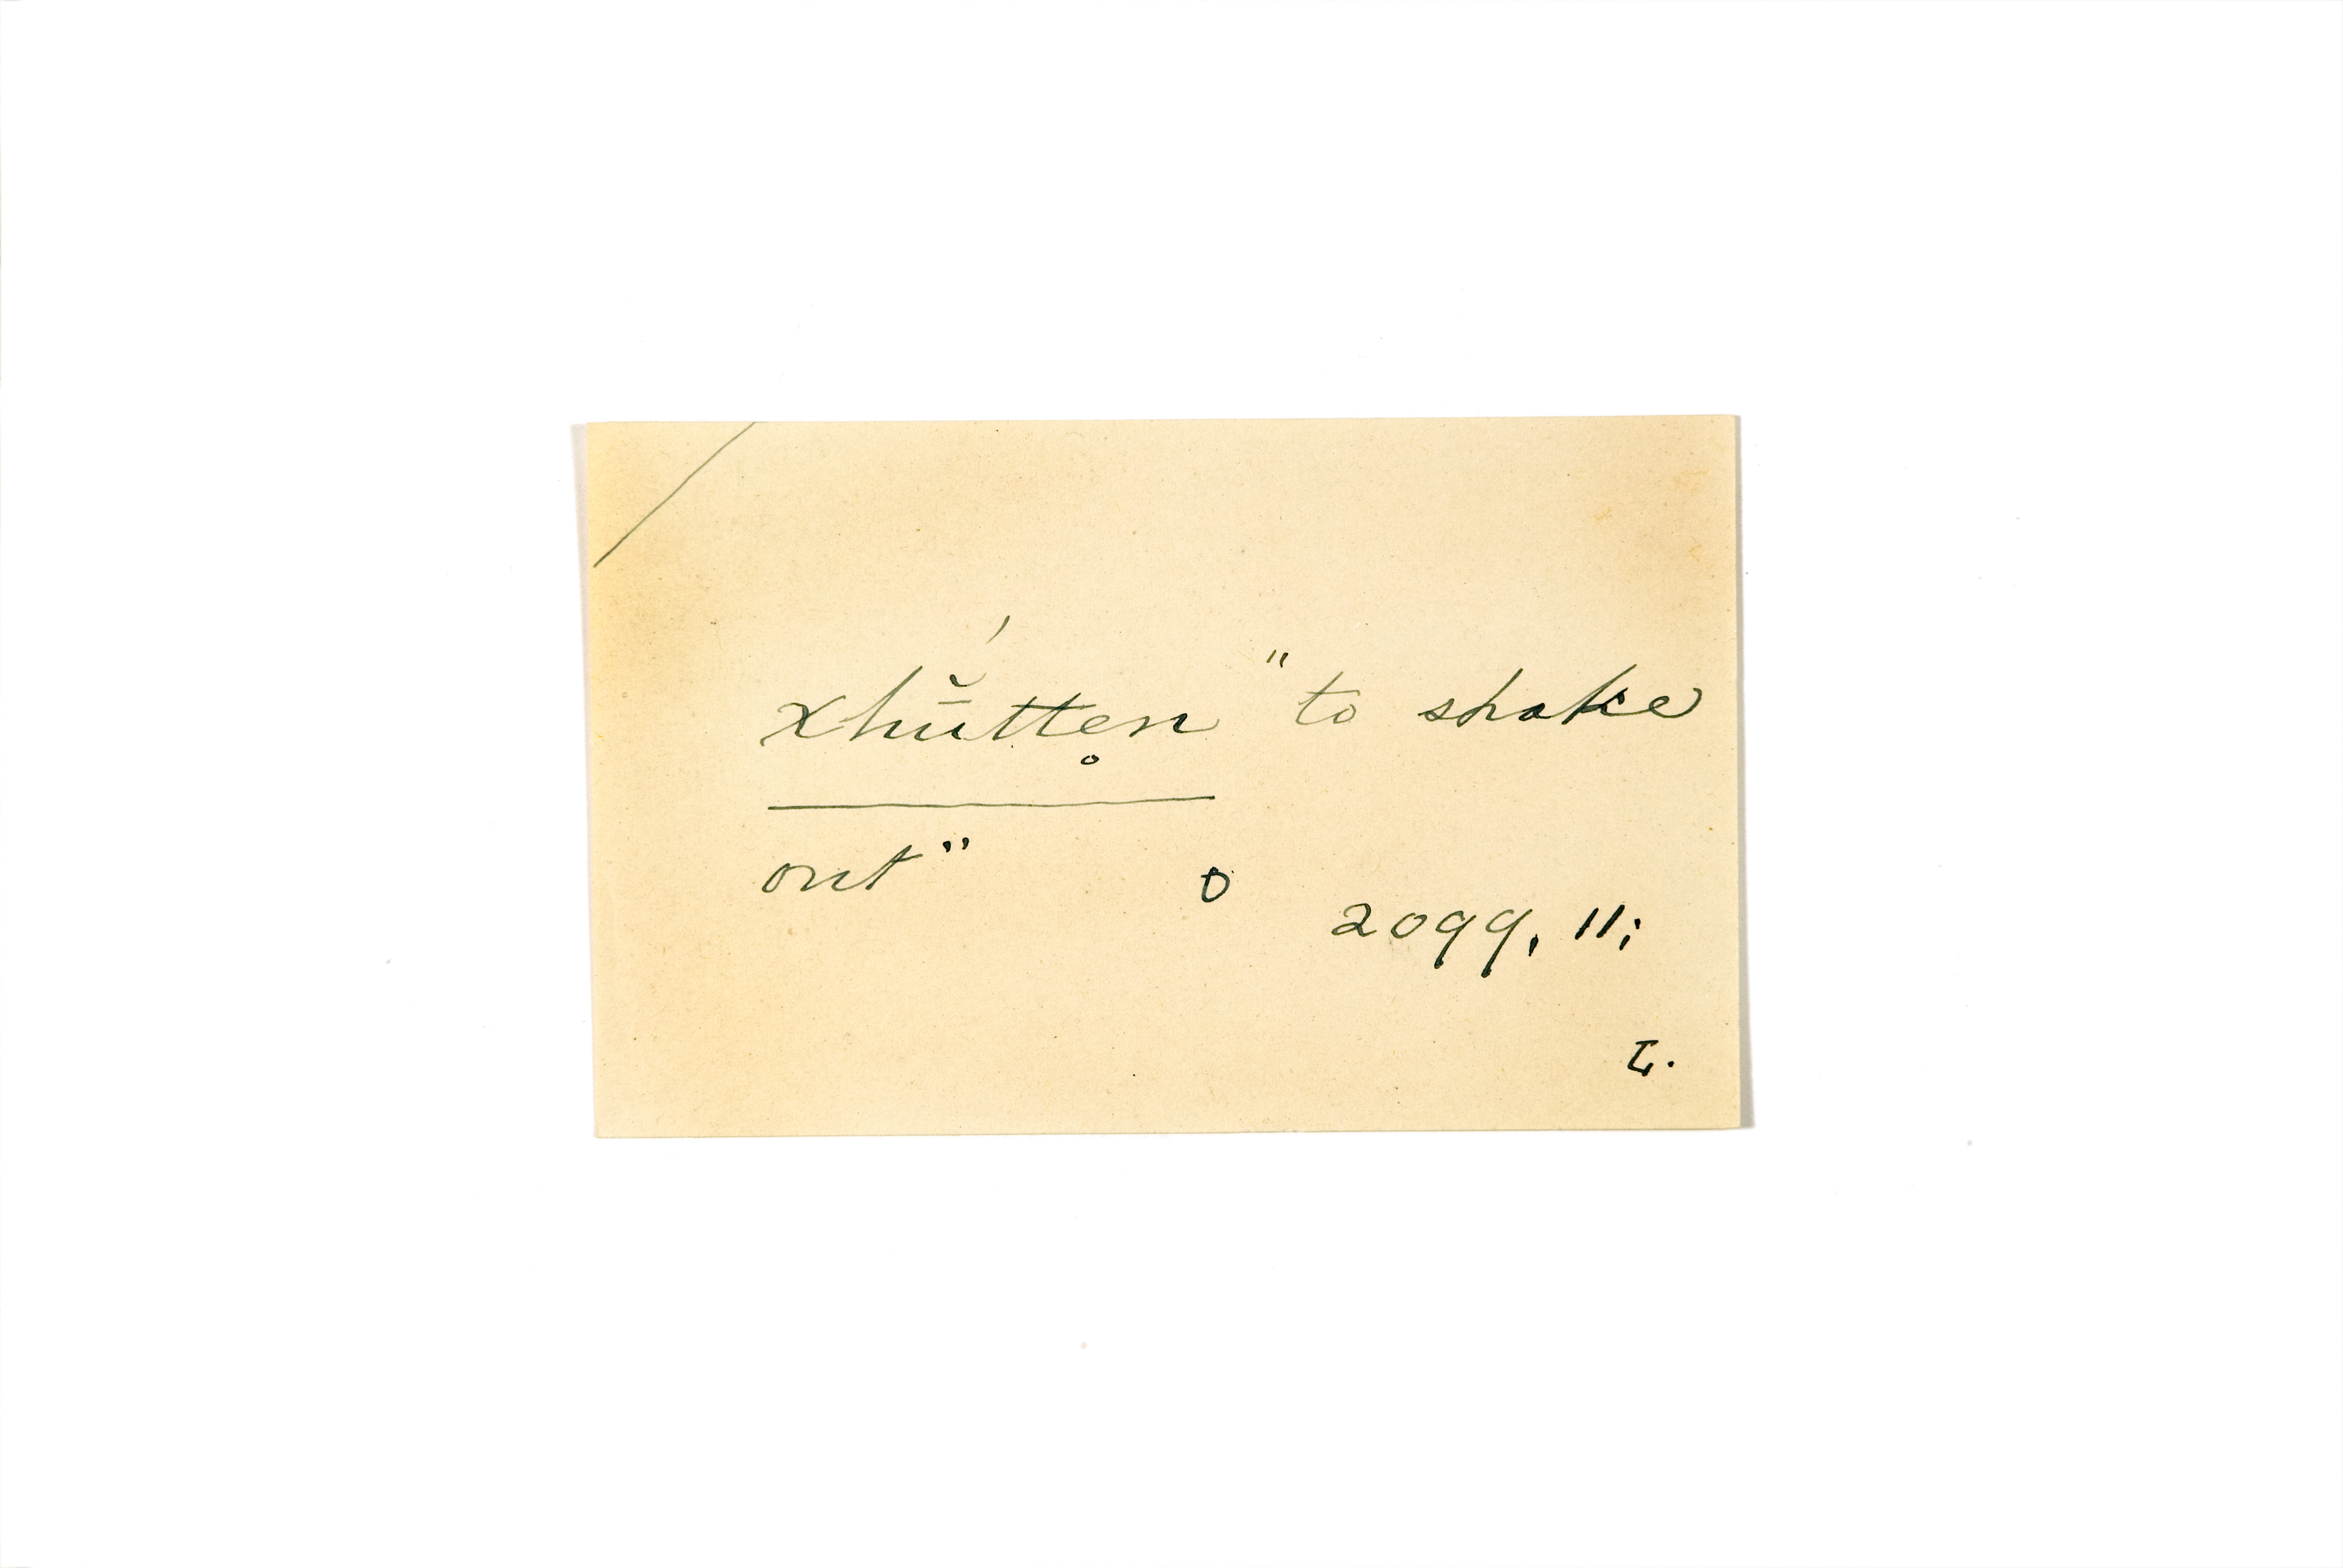 xhū̆́tte̥n "to shake
out" 0
2099, 11;
L.